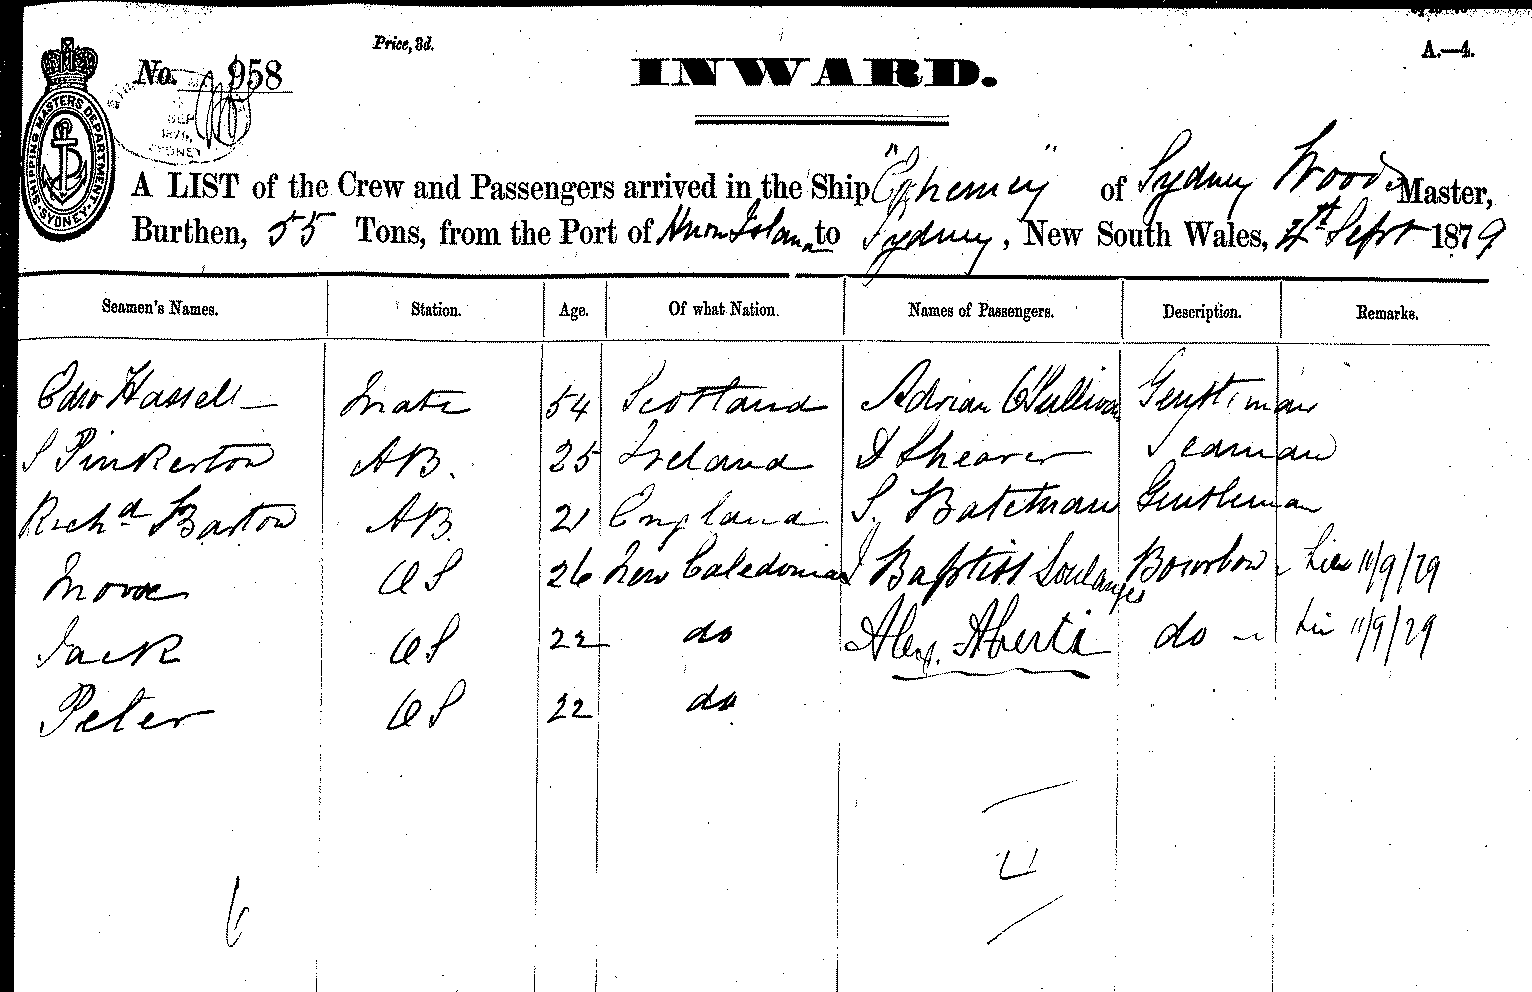 Price, 3d.
A.—4.
No. 958
INWARD.
SHIPPING MASTERS DEPARTMENT. SYDNEY.
SYDNEY
A LIST of the Crew and Passengers arrived in the Ship of Sydney Woods Master,
Burthen, 55 Tons, from the Port of Huon Island to Sydney, New South Wales, 4th Sept 1879
Seamen's Names. Station. Age. Of what Nation. Names of Passengers. Description. Remarks.
Edw Hassell Mate 54 Scotland Adrian O'Sullivan Gentleman
S Pinkerton AB. 25 Ireland Shearer Seaman
Richd Barton AB 21 England S. Bateman Gentleman
OS 26 New Caledonia J Baptist Bourbon 11/9/79
Jack OS 22 do Alex. Aberti do 11/9/79
Peter OS 22 do
6